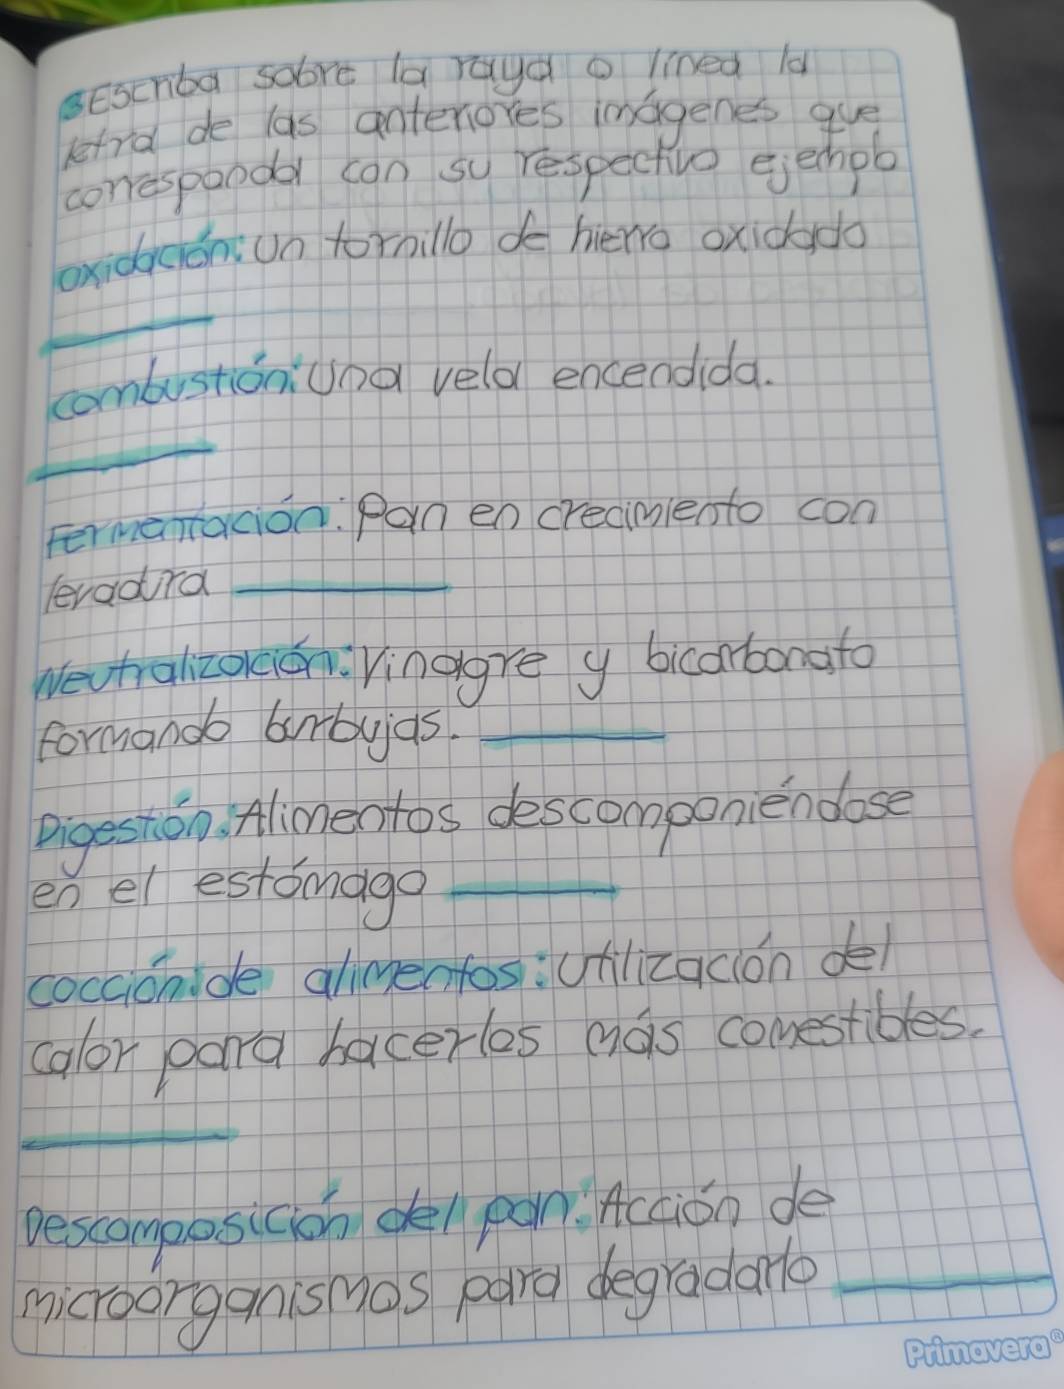 3Escriba sobre la raya o linea la
letra de las anteriores imágenes que
corresponda con su respectivo ejemplo
oxidación: Un tornillo de hierro oxidado
combustión: Una vela encendida.
Fermentación: Pan en crecimiento con
levadura
Neutralización: Vinagre y bicarbonato
formando burbujas.
Digestión: Alimentos descomponiéndose
en el estómago
cocción de alimentos: Utilización del
calor para hacerlos más comestibles.
Descomposición del pan: Acción de
microorganismos para degradarlo
Primavera®